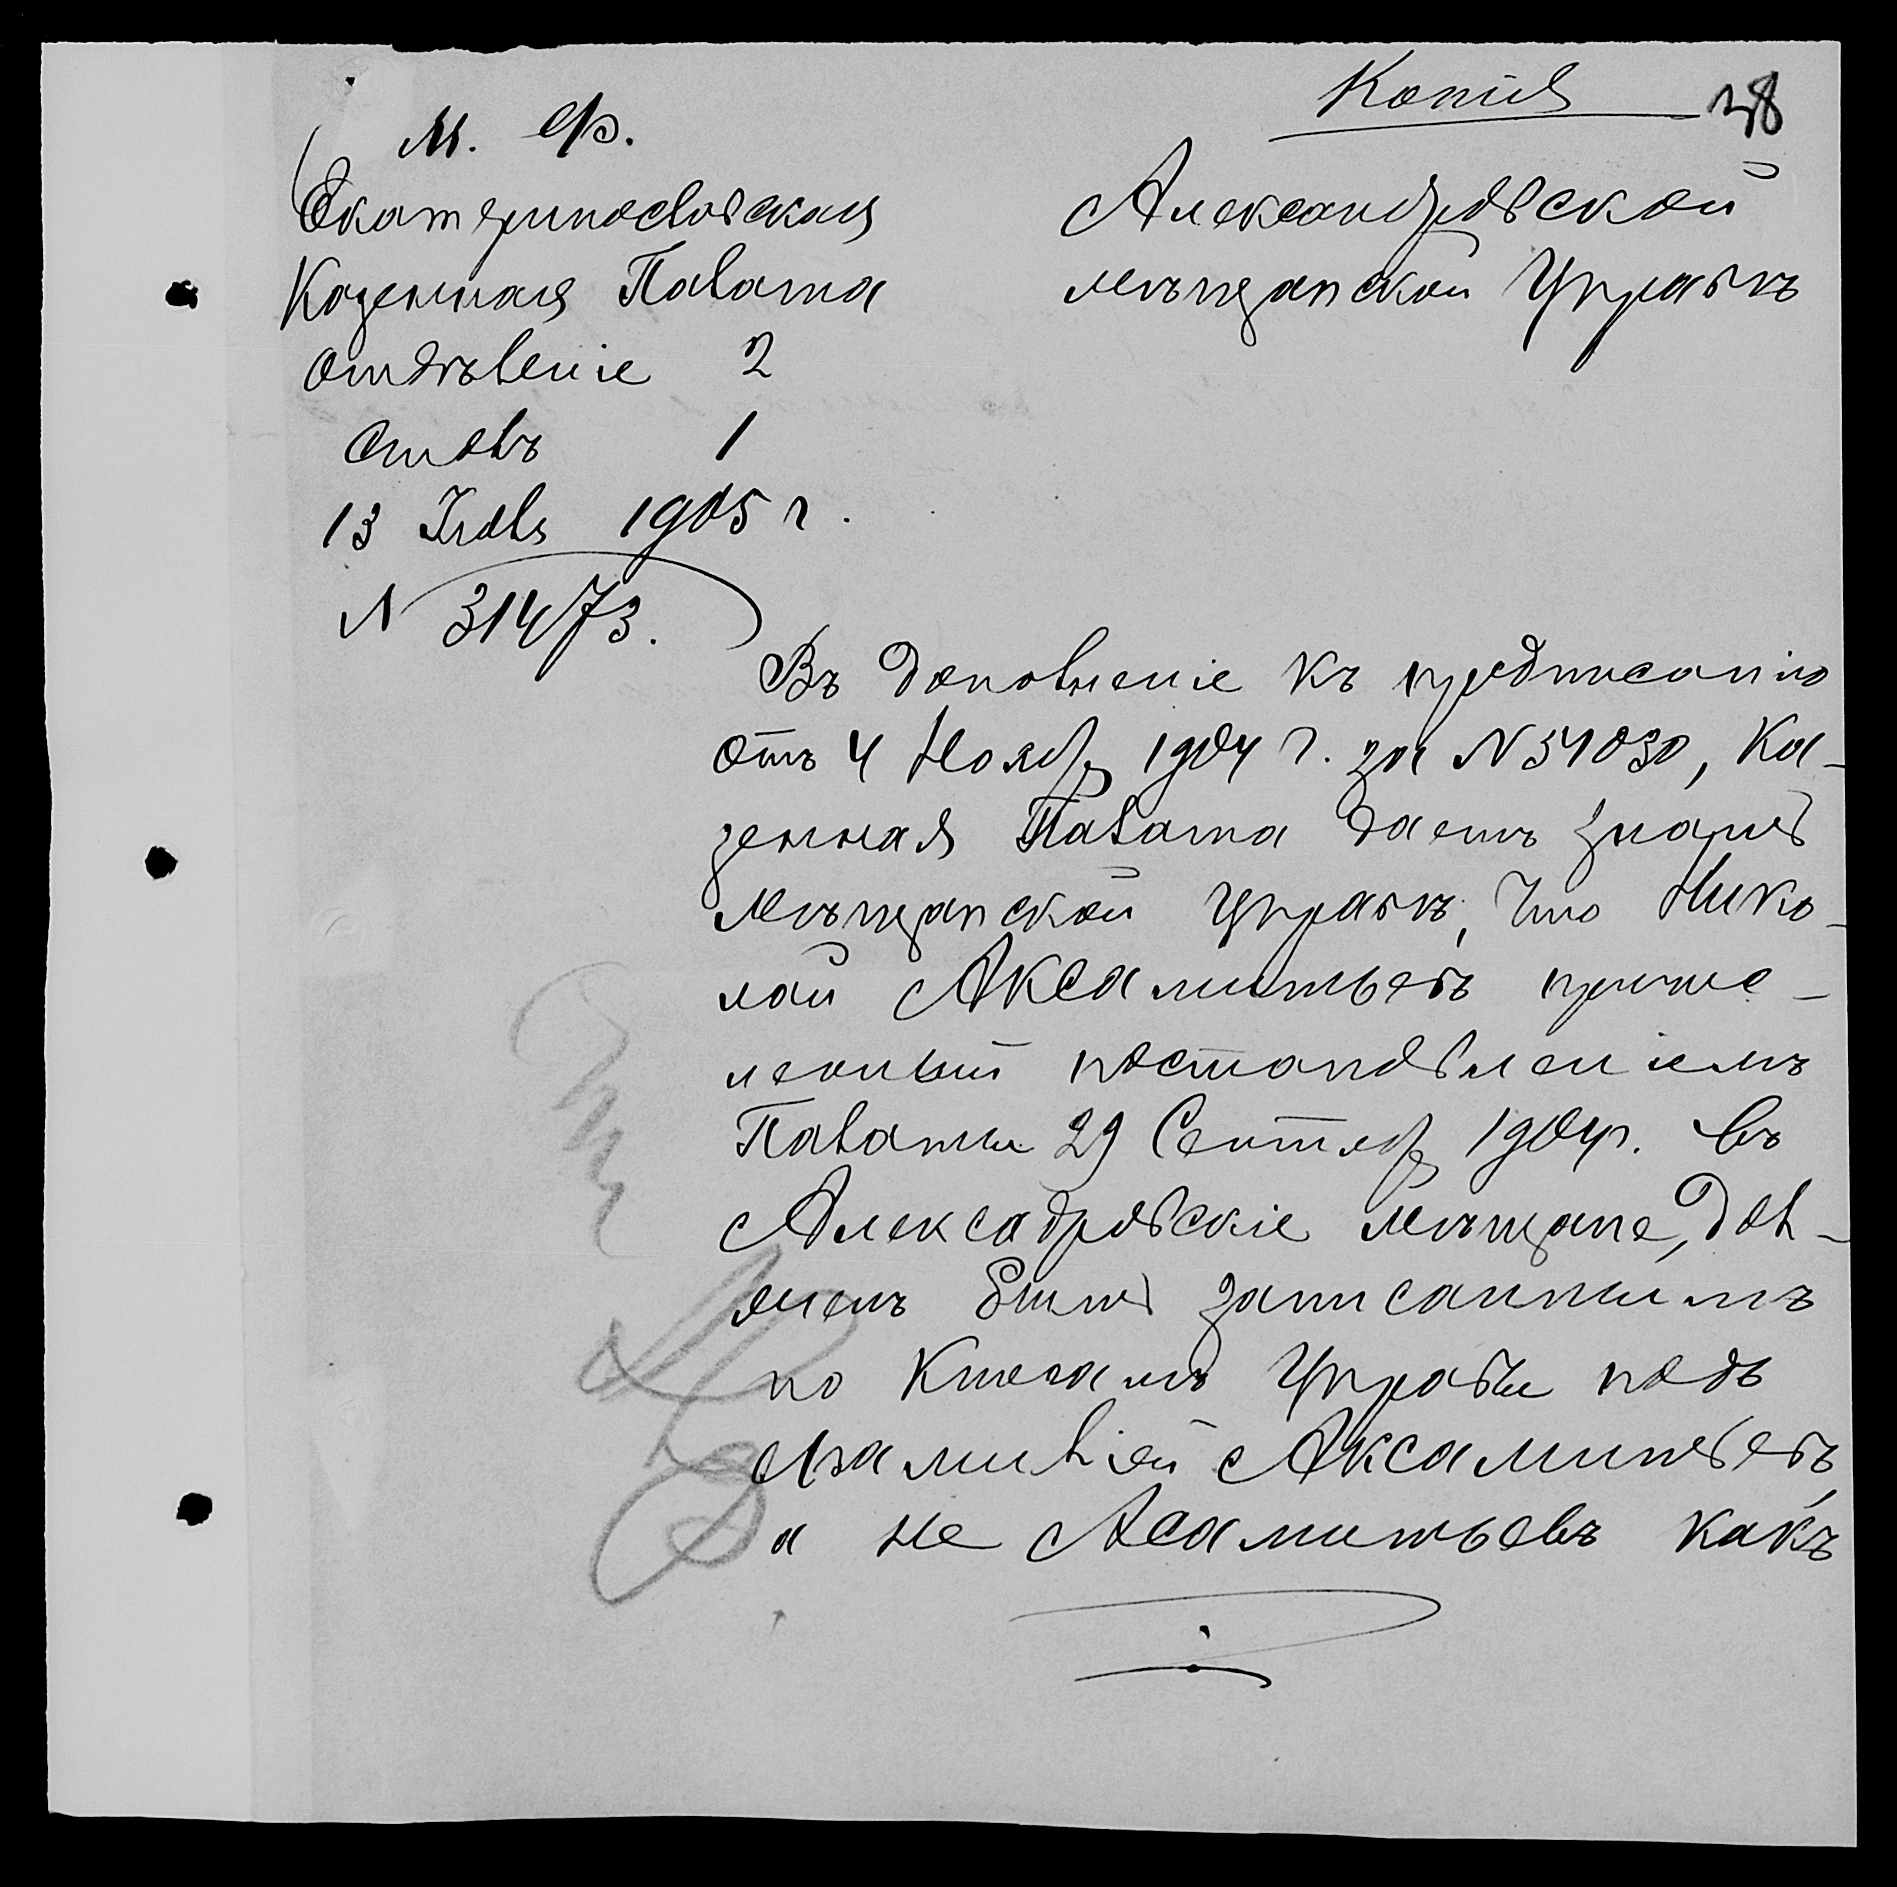 Копія 38
М. Ф.
Екатеринославская
Казенная Палата
отдѣленіе 2
столъ 1
13 Іюля 1905 г.
N 31473.
Александровской
мѣщанской Управѣ
Въ дополненіе къ предписанію
отъ 4 Нояб 1904 г. за N 54030, Ка-
зенная Палата даетъ знать
Мѣщанской Управѣ, что Нико-
лай Аксамитьевъ причис-
ленный постановленіемъ
Палаты 29 Сентяб 1904 г. въ
Алексадровскіе мѣщане, дол-
женъ быть записаннымъ
по Книгамъ Управы подъ
фамиліей Аксамитьевъ,
а не Асамитьевъ какъ